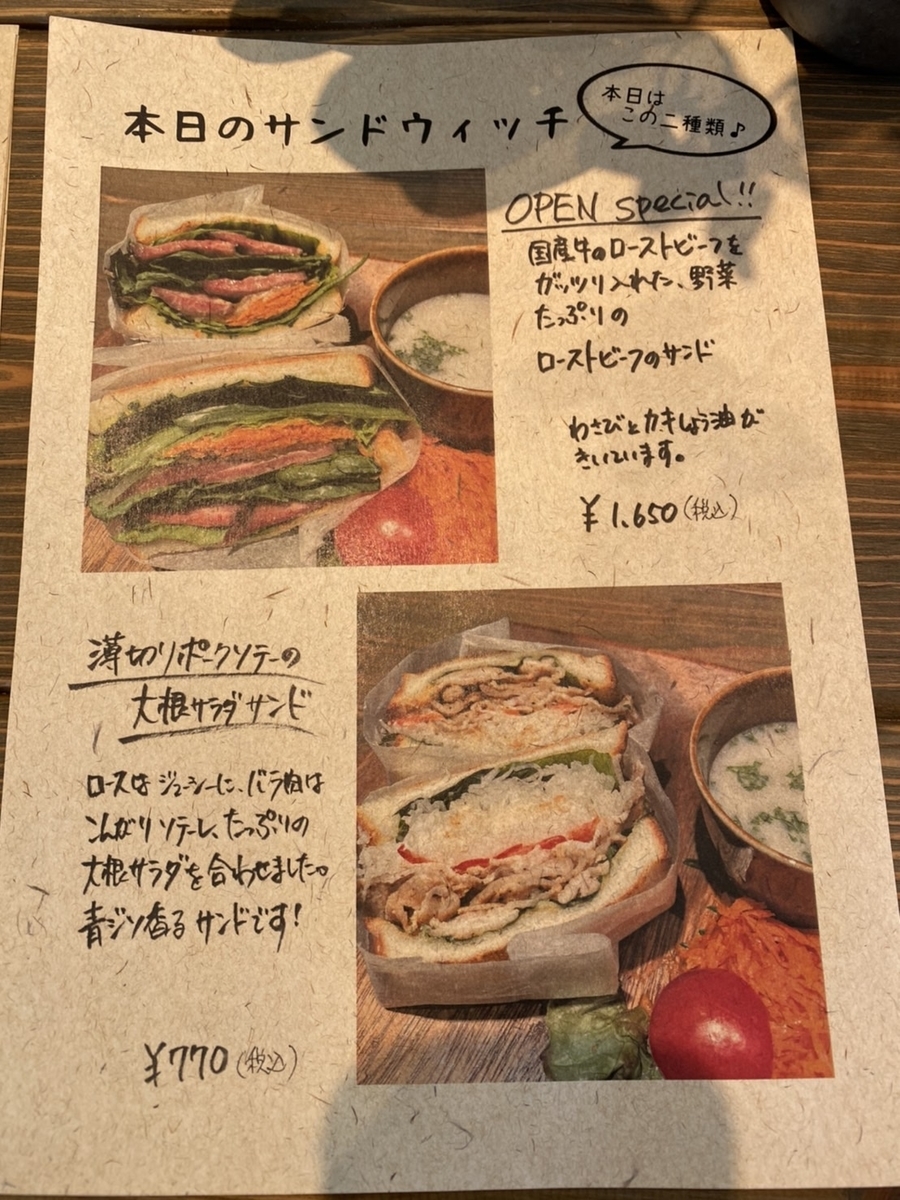 本日のサンドウィッチ
本日は
この二種類♪
OPEN special!!
国産牛のローストビーフを
ガッツリ入れた、野菜
たっぷりの
ローストビーフのサンド
わさびとカキしょう油が
きいています。
¥1.650(税込)
薄切りポークソテーの
大根サラダサンド
ロースはジューシーに、バラ肉は
こんがりソテーし、たっぷりの
大根サラダを合わせました。
青ジソ香るサンドです!
¥770(税込)